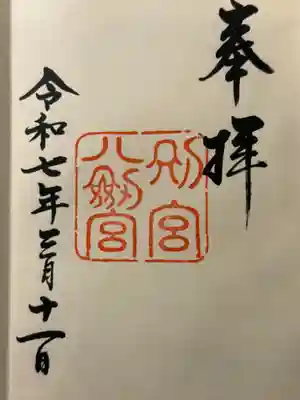 奉拝
別宮
八剱宮
令和七年三月十一日